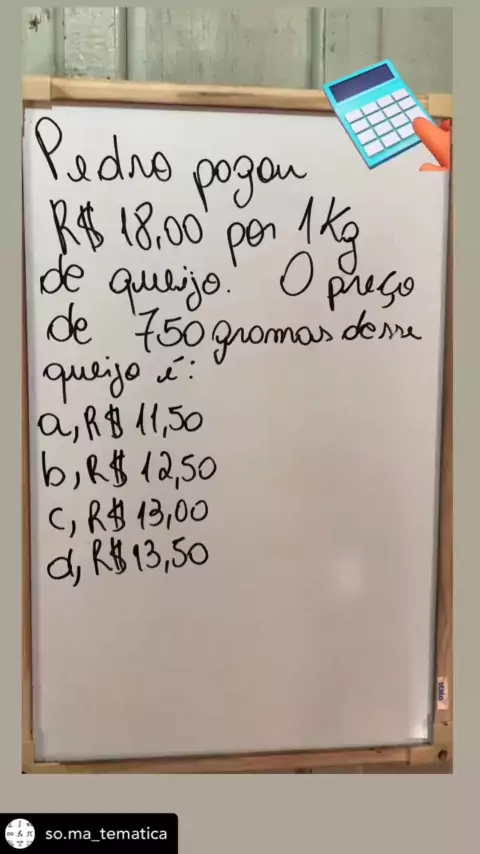 Pedro pagou
R$ 18,00 por 1Kg
de queijo. O preço
de 750 gramas desse
queijo é:
a, R$ 11,50
b, R$ 12,50
c, R$ 13,00
d, R$ 13,50
stalo
so.ma_tematica